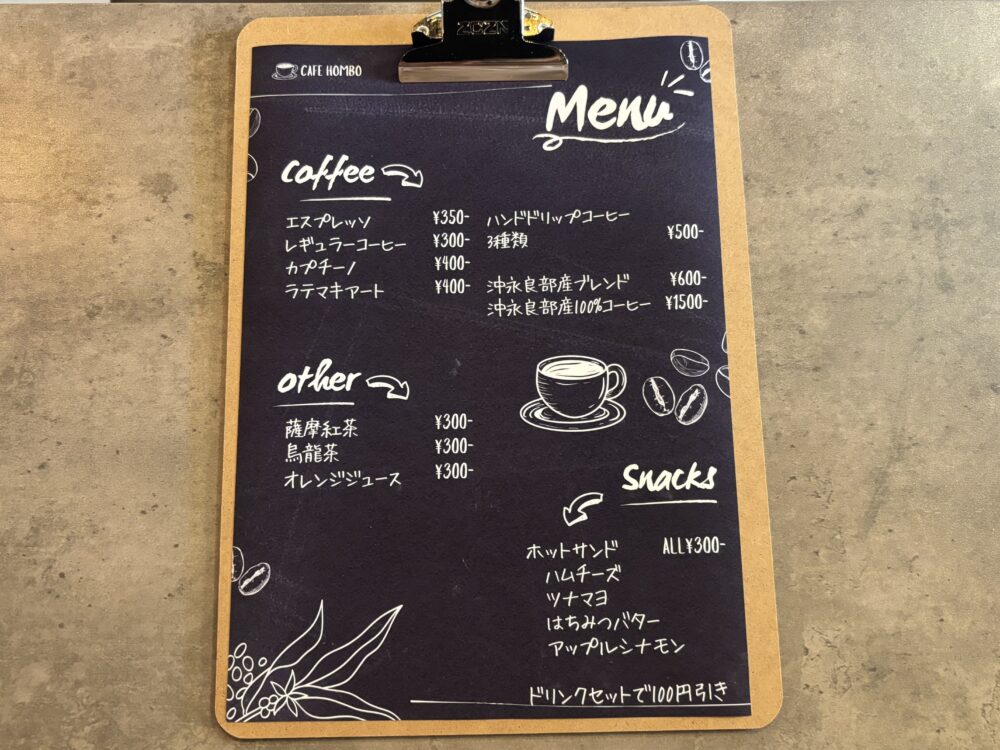 CAFE HOMBO
Menu
coffee
エスプレッソ ¥350-
レギュラーコーヒー ¥300-
カプチーノ ¥400-
ラテマキアート ¥400-
ハンドドリップコーヒー
3種類 ¥500-
沖永良部産ブレンド ¥600-
沖永良部産100%コーヒー ¥1500-
other
薩摩紅茶 ¥300-
烏龍茶 ¥300-
オレンジジュース ¥300-
snacks
ホットサンド ALL¥300-
ハムチーズ
ツナマヨ
はちみつバター
アップルシナモン
ドリンクセットで100円引き